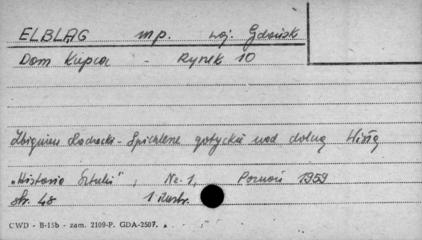 ELBLĄG mp. woj. Gdańsk
Dom Kupca - Rynek 10
Zbigniew Radacki - Spichlerze gotyckie nad dolną Wisłą
"Historia Sztuki", Nr. 1, Poznań 1959
str. 48 1 ilustr.
CWD - B-15b - zam. 2109-P. GDA-2507.